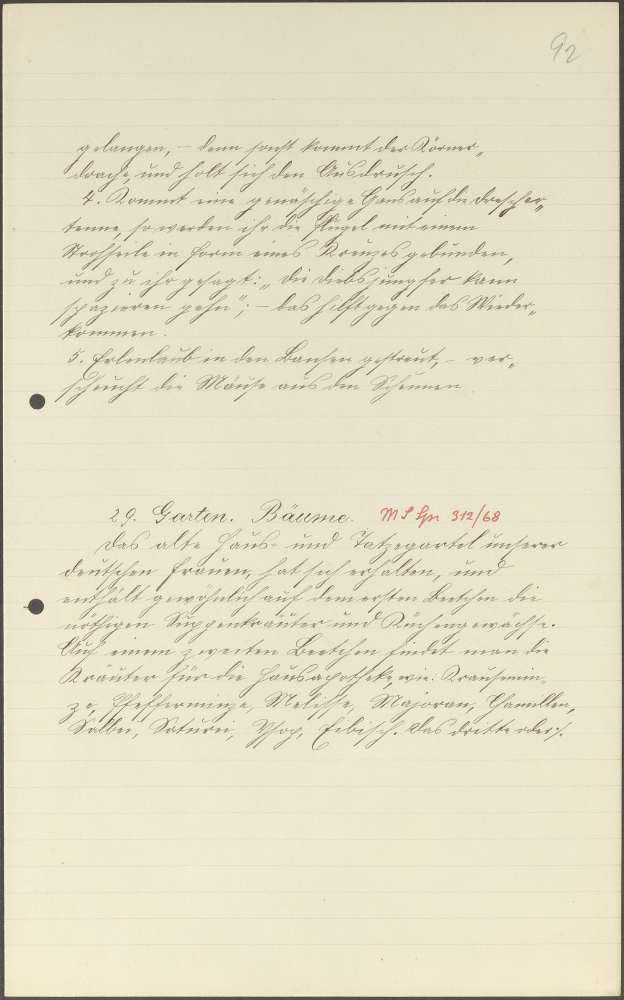 92
gelangen, – denn sonst kommt der Körner„
drache, und holt sich den Ausdrusch.
4. Kommt eine genäschige Gans auf die Drescher„
tenne, so werden ihr die Flügel mit einem
Strohseile in Form eines Kreuzes gebunden,
und zu ihr gesagt: „die Diebsjungfer kann
spazieren gehn“; – das hilft gegen das Wieder„
kommen.
5. Erlenlaub in den Bansen gestreut, – ver„
scheucht die Mäuse aus den Scheunen.
29. Garten. Bäume. MS Gr 312/68
Das alte Haus- und Tatzegartel unserer
deutschen Frauen, hat sich erhalten, und
enthält gewöhnlich auf dem ersten Beetchen die
nöthigen Suppenkräuter und Küchengewächse.
Auf einem zweiten Beetchen findet man die
Kräuter für die Hausapotheke, wie: Krausemin„
ze, Pfefferminze, Melisse, Majoran, Chamillen,
Salbei, Saturei, Ysop, Eibisch. Das dritte oder ./.